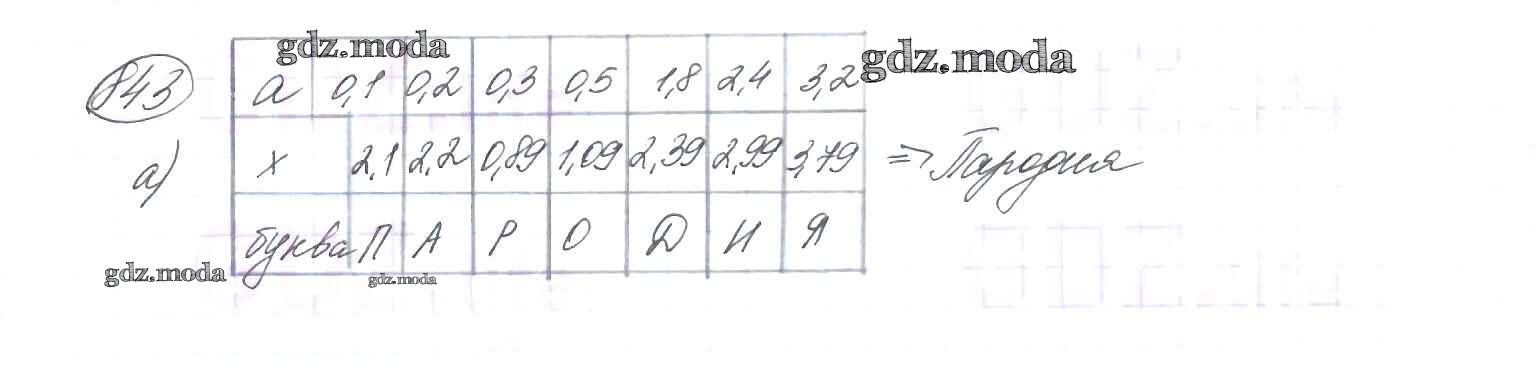 gdz.moda
gdz.moda
843 а 0,1 0,2 0,3 0,5 1,8 2,4 3,2
а) х 2,1 2,2 0,89 1,09 2,39 2,99 3,79 => Пародия
буква П А Р О Д И Я
gdz.moda
gdz.moda